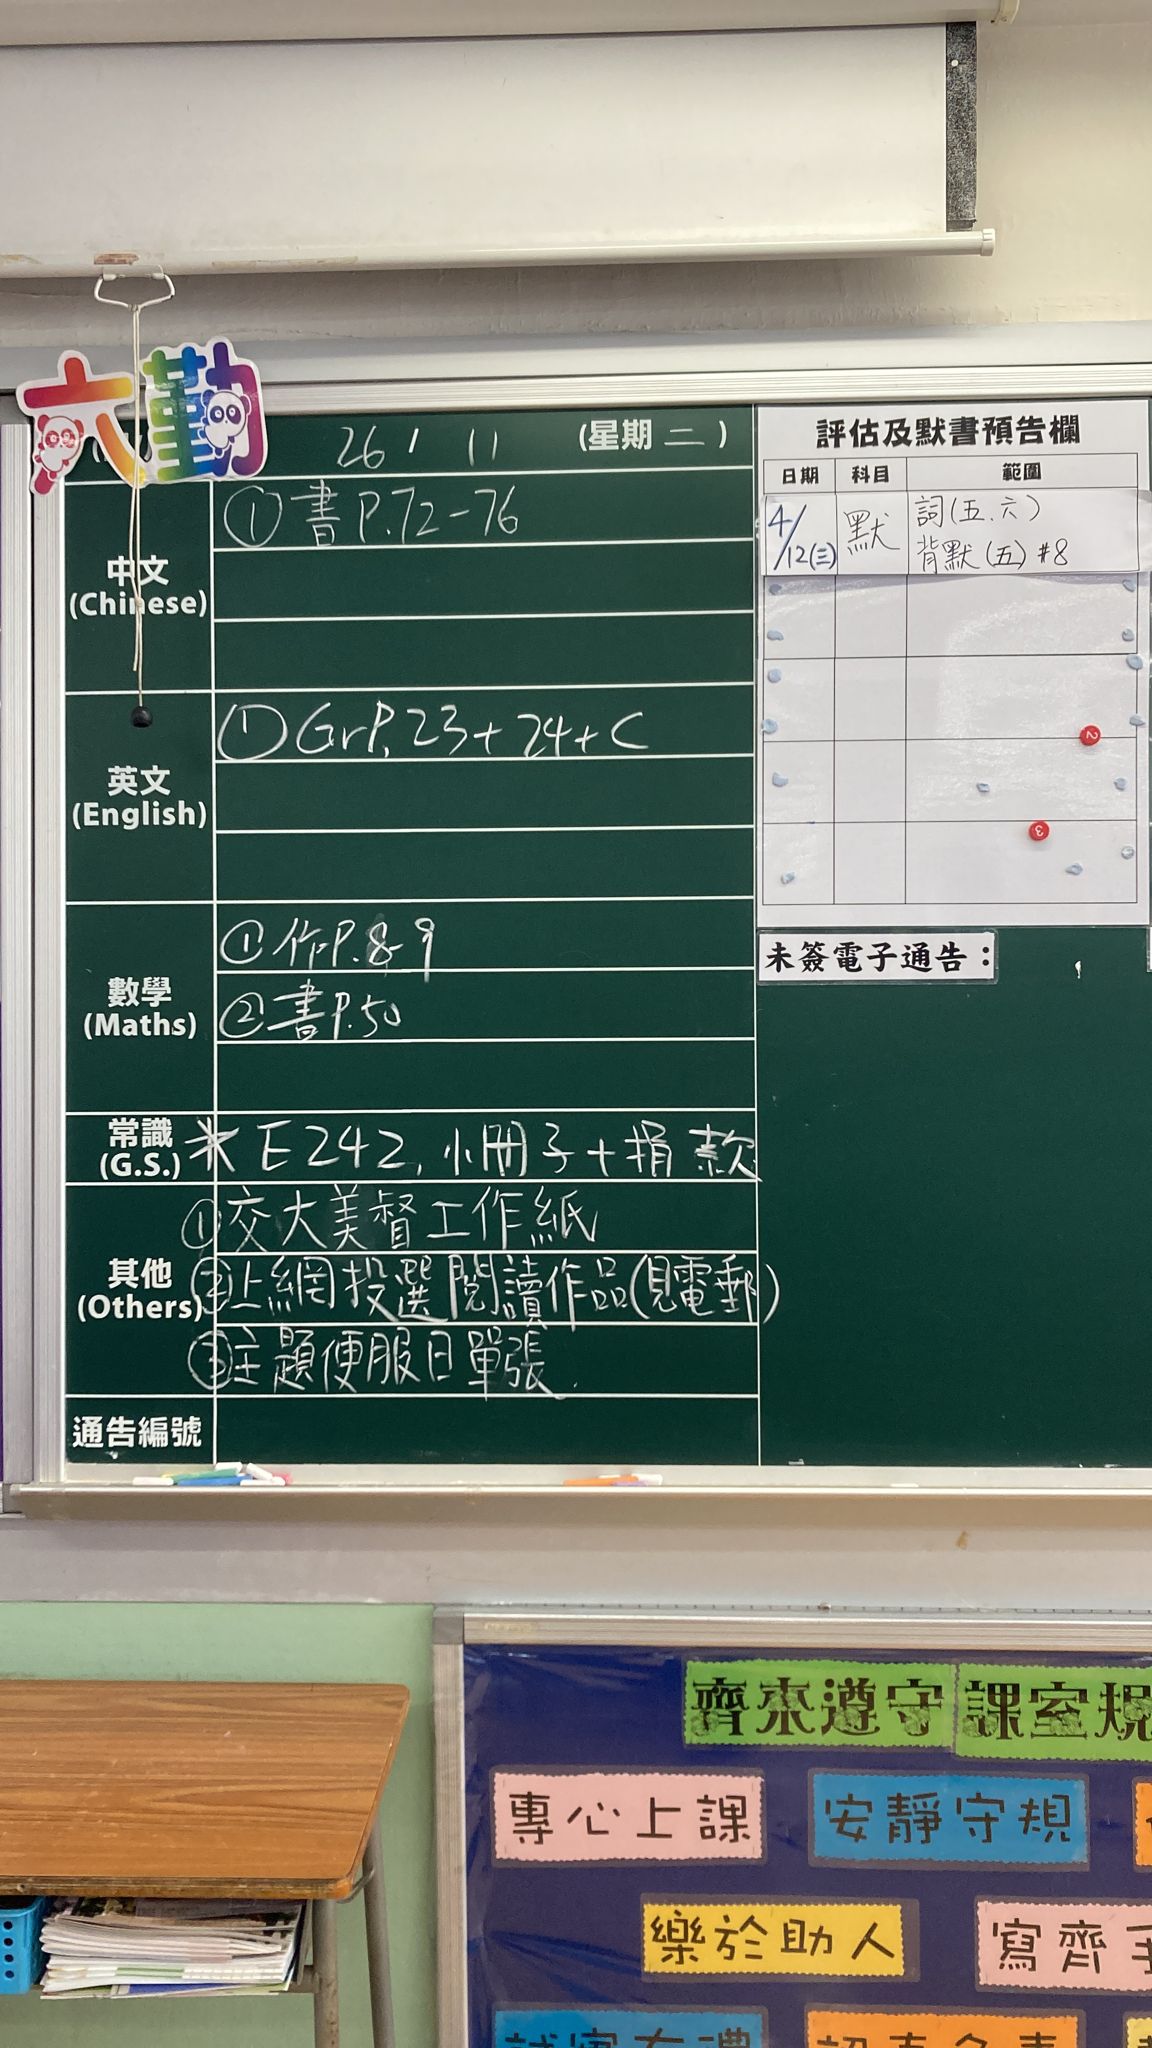 六勤
26 / 11 (星期二)
中文
(Chinese)
① 書 P.72-76
英文
(English)
① Gr P. 23 + 24 + C
數學
(Maths)
① 作 P. 8-9
② 書 P.50
常識
(G.S.)
* E242, 小冊子 + 捐款
其他
(Others)
① 交大美督工作紙
② 上網投選閱讀作品(見電郵)
③ 主題便服日單張.
通告編號
評估及默書預告欄
日期 科目 範圍
4/12(三) 默 詞(五、六)
背默(五) #8
2
3
未簽電子通告：
齊來遵守 課室規
專心上課 安靜守規
樂於助人 寫齊手